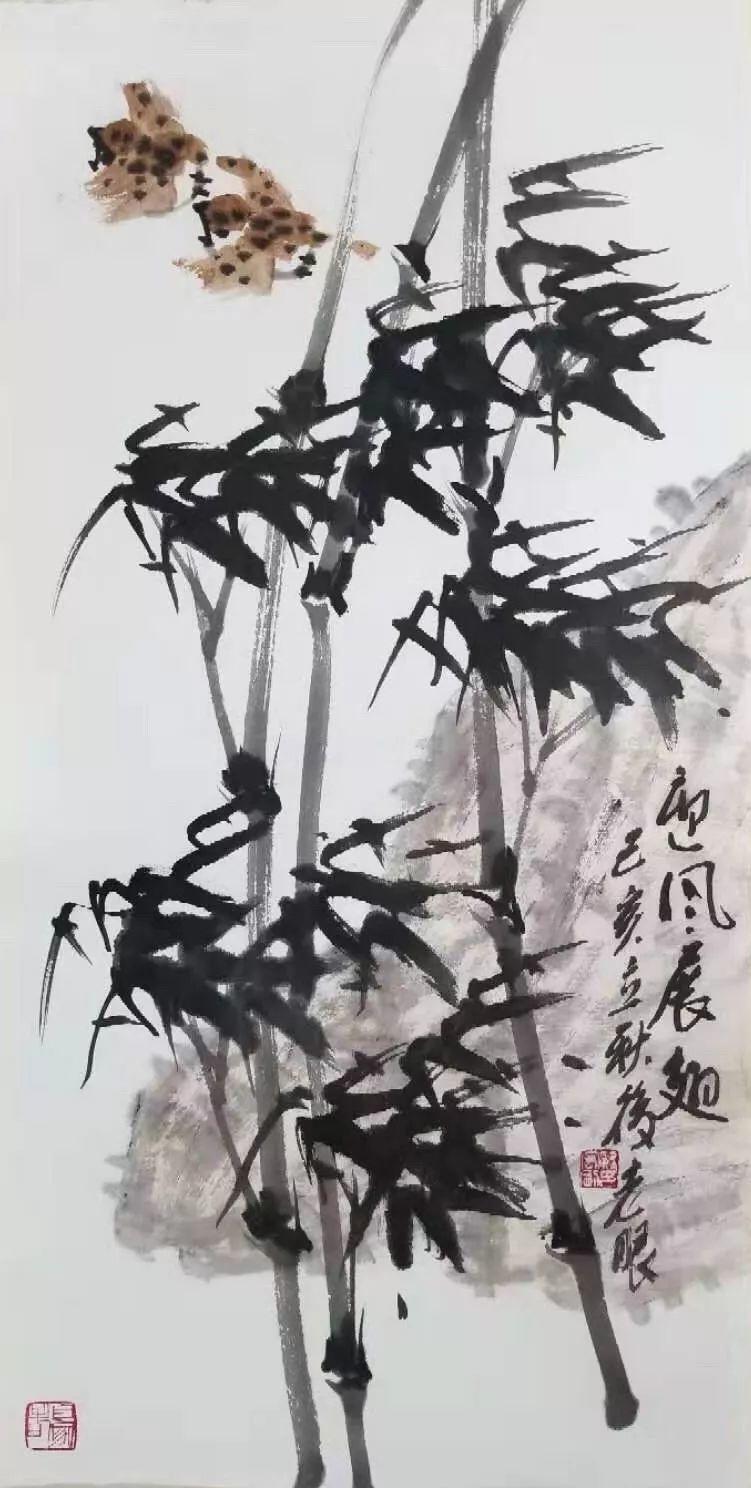 迎风展翅
己亥立秋後老眼